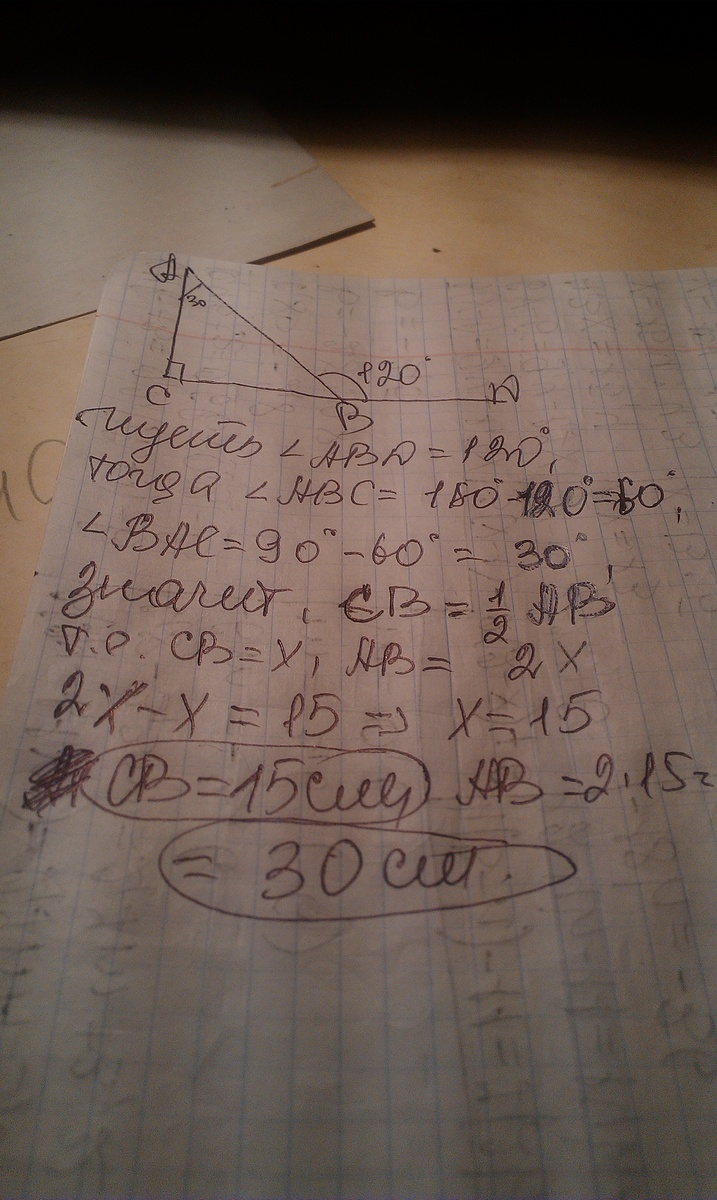 A
30
C
120°
B
D
пусть ∠ABD = 120°,
тогда ∠ABC = 180° - 120° = 60°,
∠BAC = 90° - 60° = 30°,
Значит, CB = 1/2 AB
т.о. CB = x, AB = 2x
2x - x = 15 => x = 15
CB = 15 см, AB = 2·15 =
= 30 см.